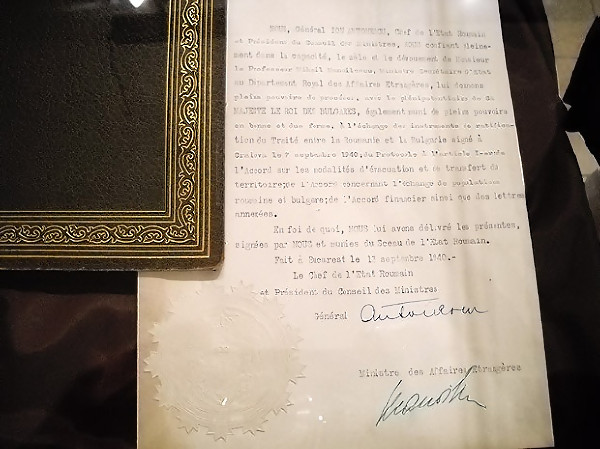 NOUS, Général ION ANTONESCU, Chef de l'Etat Roumain
et Président du Conseil des Ministres, NOUS confiant pleine-
ment dans la capacité, le zèle et le dévouement de Monsieur
le Professeur Mihail Manoilescu, Ministre Secrétaire d'Etat
au Département Royal des Affaires Etrangères, lui donnons
pleins pouvoirs de procéder, avec le plénipotentiaire de Sa
MAJESTE LE ROI DES BULGARES, également muni de pleins pouvoirs
en bonne et due forme, à l'échange des instruments de ratifica-
tion du Traité entre la Roumanie et la Bulgarie signé à
Craiova le 7 septembre 1940; du Protocole à l'article
l'Accord sur les modalités d'évacuation et de transfert du
territoire; de l'Accord concernant l'échange de population
roumaine et bulgare; de l'Accord financier ainsi que des lettres
annexées.
En foi de quoi, NOUS lui avons délivré les présentes,
signées par NOUS et munies du Sceau de l'Etat Roumain.
Fait à Bucarest le 13 septembre 1940.-
Le Chef de l'Etat Roumain
et Président du Conseil des Ministres
Général Antonescu
Ministre des Affaires Etrangères